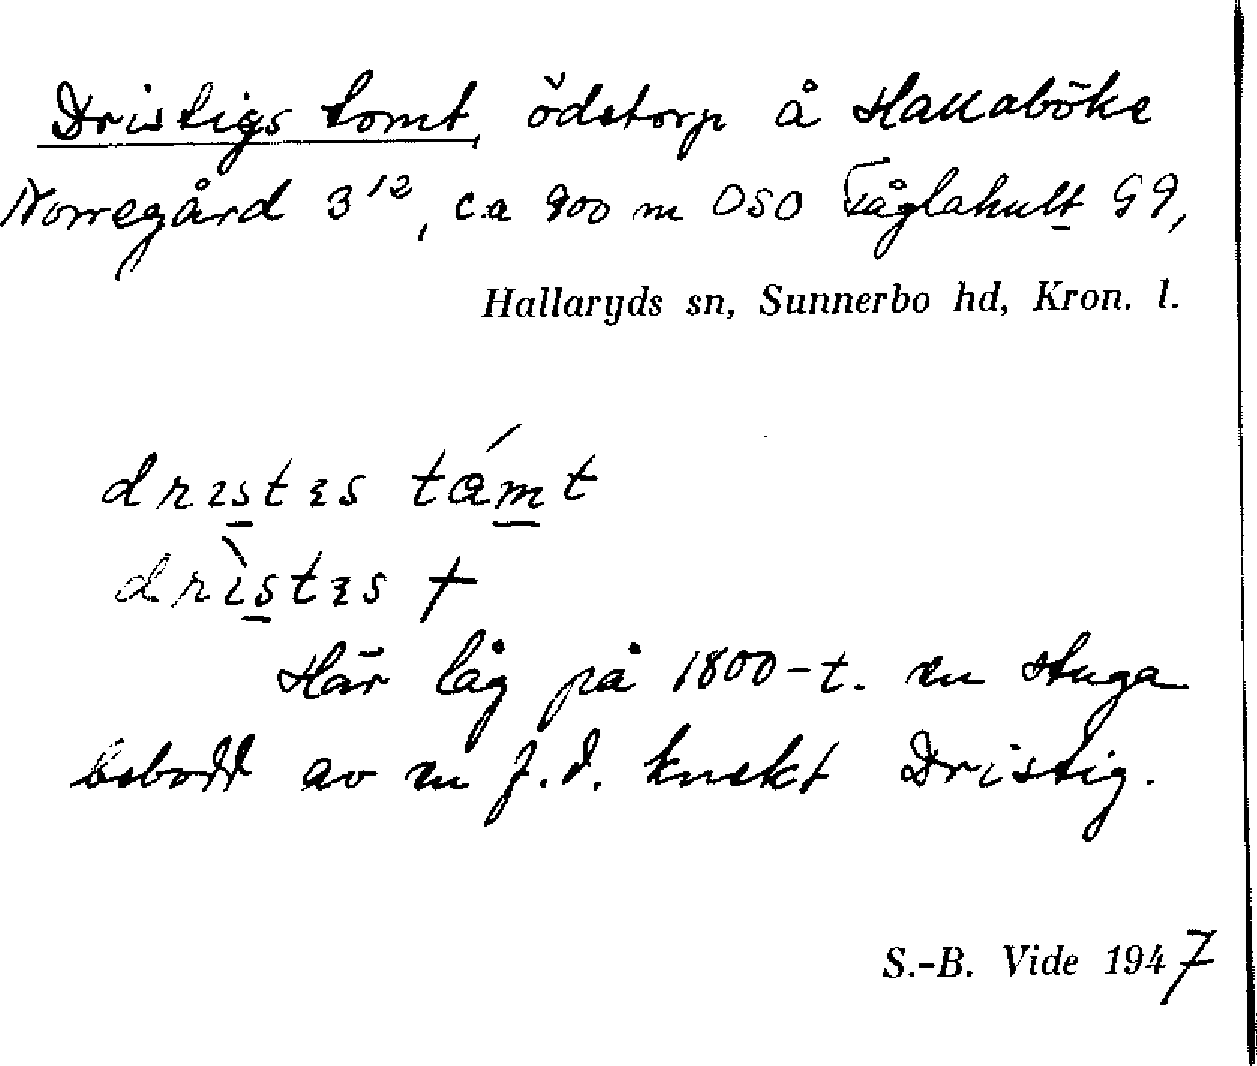 Dristigs tomt, ödetorp å Hallaböke
Norregård 3¹², ca 900 m OSO Fåglahult G9,
Hallaryds sn, Sunnerbo hd, Kron. l.
drıstɛs tɑ́mt
drı̀stɛs +
Här låg på 1800-t. en stuga
bebodd av en f.d. knekt Dristig.
S.-B. Vide 1947